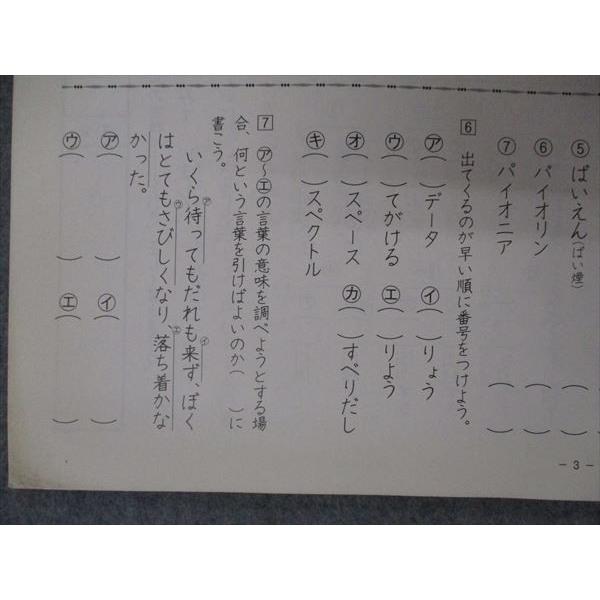 ⑤ ばいえん(ばい煙)( )( )
⑥ バイオリン ( )( )
⑦ パイオニア ( )( )
6 出てくるのが早い順に番号をつけよう。
㋐( )データ ㋑( )りょう
㋒( )てがける ㋓( )りよう
㋔( )スペース ㋕( )すべりだし
㋖( )スペクトル
7 ㋐〜㋓の言葉の意味を調べようとする場
合、何という言葉を引けばよいのか( )に
書こう。
いくら待ってもだれも来ず、ぼく
㋐ ㋑
はとてもさびしくなり、落ち着かな
㋒ ㋓
かった。
㋐( ) ㋑( )
㋒( ) ㋓( )
− 3 −